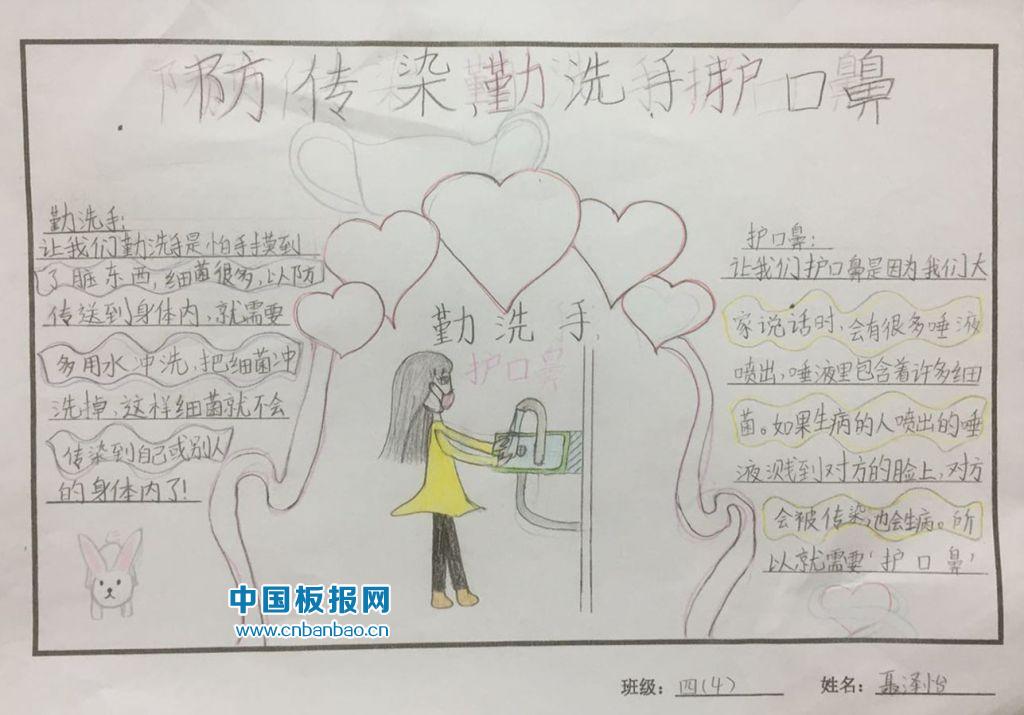 防传染勤洗手护口鼻
勤洗手:
让我们勤洗手是怕手摸到
了脏东西,细菌很多,以防
传送到身体内,就需要
多用水冲洗,把细菌冲
洗掉,这样细菌就不会
传染到自己或别人
的身体内了!
勤洗手
护口鼻
护口鼻:
让我们护口鼻是因为我们大
家说话时,会有很多唾液
喷出,唾液里包含着许多细
菌。如果生病的人喷出的唾
液溅到对方的脸上,对方
会被传染,也会生病。所
以就需要‘护口鼻’
中国板报网
www.cnbanbao.cn
班级: 四(4)
姓名: 聂泽怡